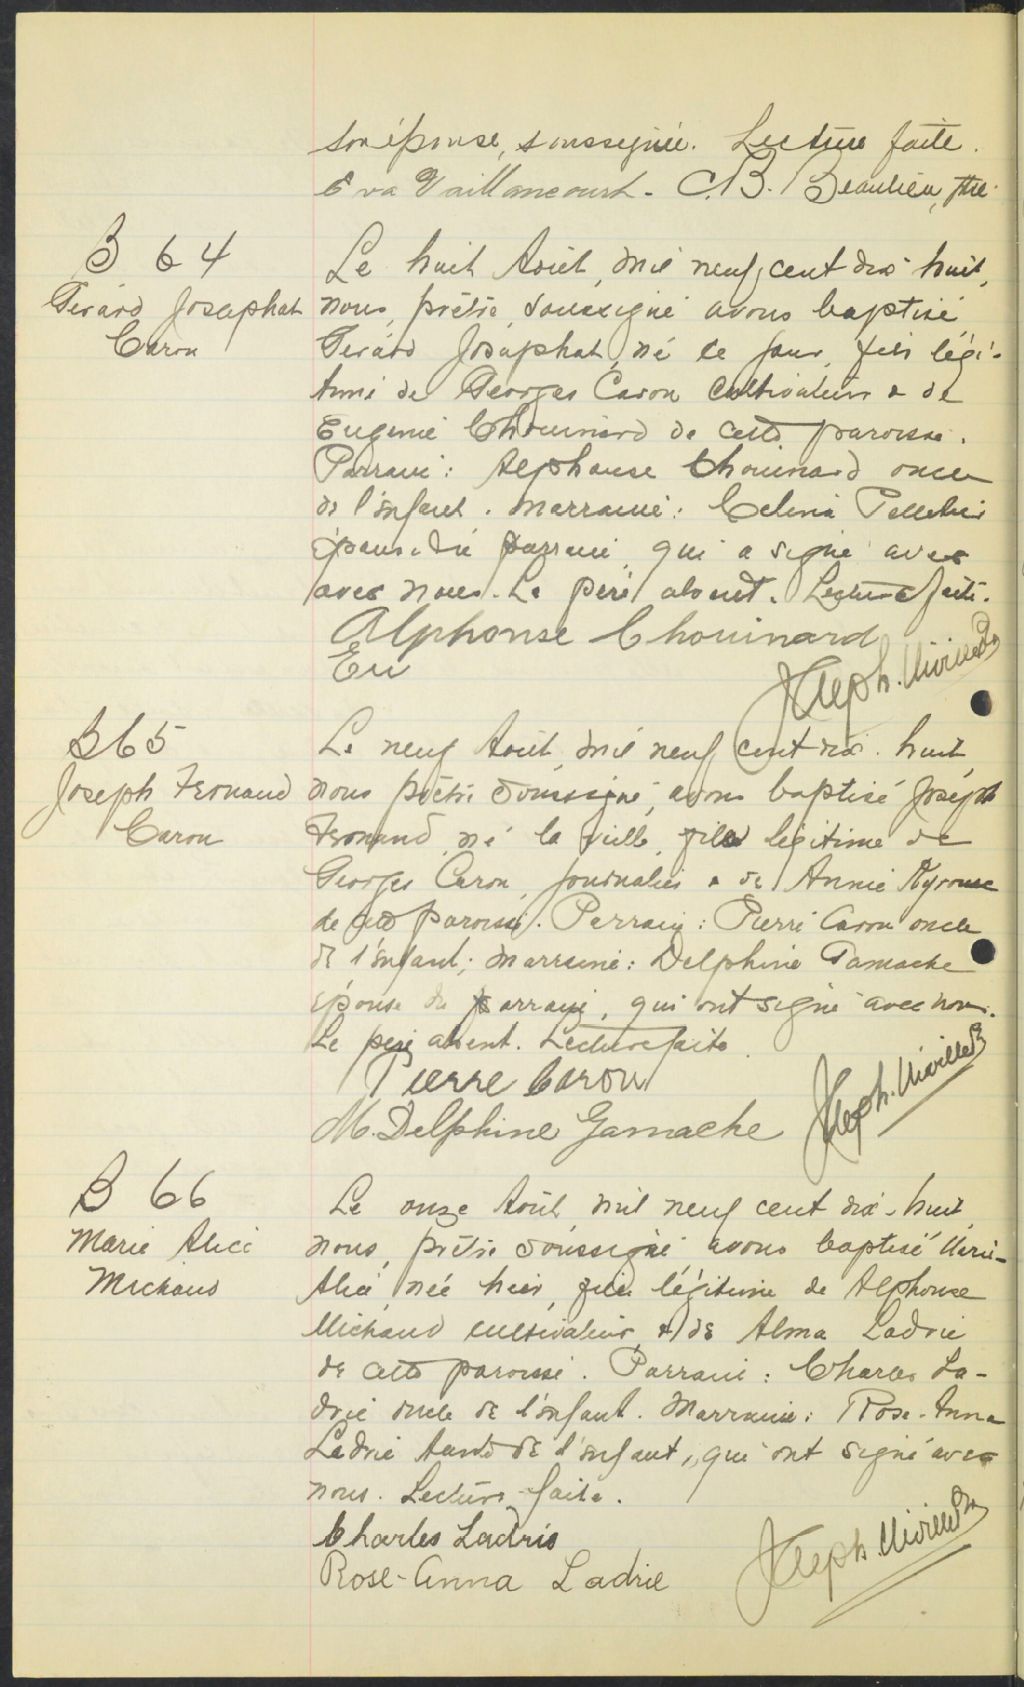 son épouse, soussignée. Lecture faite.
Eva Vaillancourt. C.B. Beaulieu, ptre.
B 64
Gérard Josaphat
Caron
Le huit Août, mil neuf cent dix huit,
nous, prêtre, soussigné avons baptisé
Gérard Josaphat, né ce jour, fils légi-
time de Georges Caron cultivateur & de
Eugénie Chouinard de cette paroisse.
Parrain: Alphonse Chouinard oncle
de l'enfant. Marraine: Celina Pelletier
épouse du parrain, qui a signé avec
avec nous. Le père absent. Lecture faite.
Alphonse Chouinard
Eu
B 65
Joseph Fernand
Caron
Le neuf Août, mil neuf cent dix-huit,
nous prêtre soussigné, avons baptisé Joseph
Fernand, né la veille, fils légitime de
Georges Caron, journalier & de Annie
de cette paroisse. Parrain: Pierre Caron oncle
de l'enfant; marraine: Delphine Gamache
épouse du parrain, qui ont signé avec nous.
Le père absent. Lecture faite
Pierre Caron
M. Delphine Gamache
B 66
Marie Alice
Michaud
Le onze Août, mil neuf cent dix-huit,
nous, prêtre soussigné, avons baptisé Marie-
Alice, née hier, fille légitime de Alphonse
Michaud cultivateur, & de Alma Ladrie
de cette paroisse. Parrain: Charles La-
drie oncle de l'enfant. Marraine: Rose-Anna
Ladrie tante de l'enfant, qui ont signé avec
nous. Lecture faite.
Charles Ladrie
Rose-Anna Ladrie